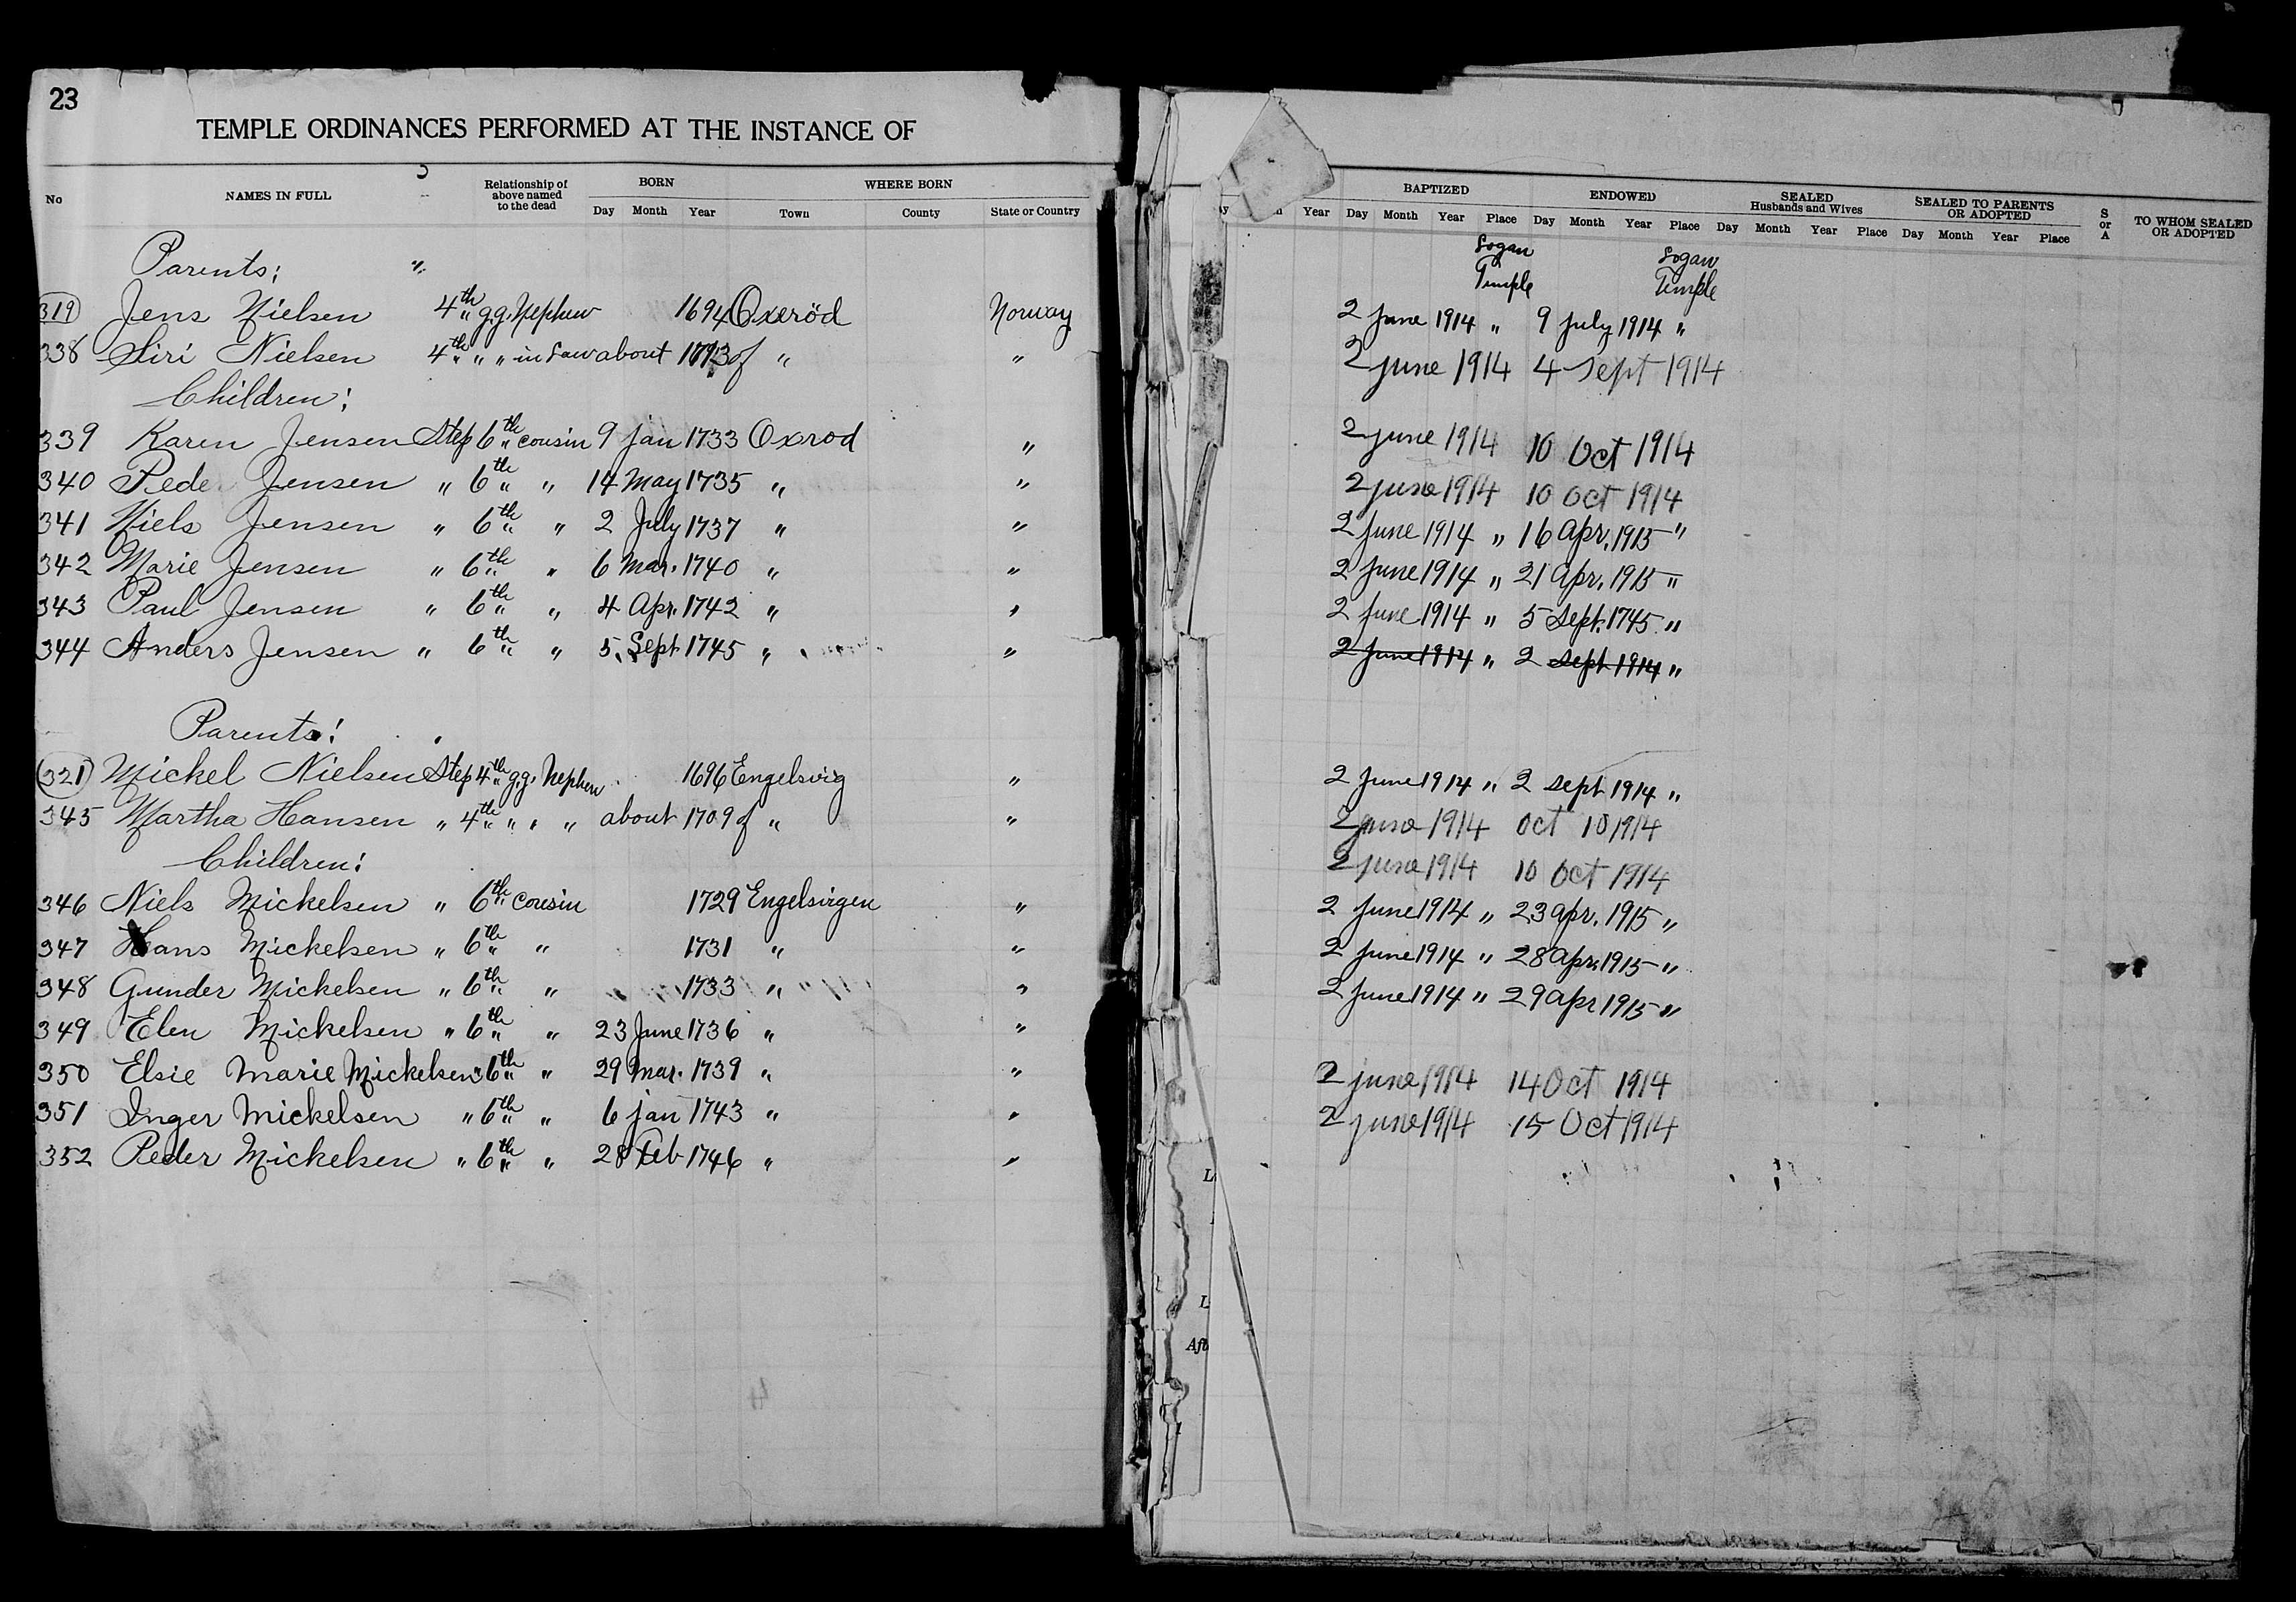 23
TEMPLE ORDINANCES PERFORMED AT THE INSTANCE OF
No NAMES IN FULL Relationship of above named to the dead BORN Day Month Year WHERE BORN Town County State or Country
Parents:
319 Jens Nielsen 4th g.g. Nephew 1694 Oxeröd Norway
338 Siri Nielsen 4th " " in Law about of " "
Children:
339 Karen Jensen Step 6th cousin 9 Jan 1733 Oxrod "
340 Peder Jensen " 6th " 14 May 1735 " "
341 Niels Jensen " 6th " 2 July 1737 " "
342 Marie Jensen " 6th " 6 Mar. 1740 " "
343 Paul Jensen " 6th " 4 Apr. 1742 " "
344 Anders Jensen " 6th " 5 Sept 1745 " "
Parents:
321 Mickel Nielsen Step 4th g.g. Nephew 1696 Engelsvig "
345 Martha Hansen " 4th " " " about 1709 of " "
Children:
346 Niels Mickelsen " 6th cousin 1729 Engelsvigen "
347 Hans Mickelsen " 6th " 1731 " "
348 Gunder Mickelsen " 6th " 1733 " "
349 Elen Mickelsen " 6th " 23 June 1736 " "
350 Elsie Marie Mickelsen " 6th " 29 Mar. 1739 " "
351 Inger Mickelsen " 6th " 6 Jan 1743 " "
352 Peder Mickelsen " 6th " 28 Feb 1746 " "
Year BAPTIZED Day Month Year Place ENDOWED Day Month Year Place SEALED Husbands and Wives Day Month Year Place SEALED TO PARENTS OR ADOPTED Day Month Year Place S or A TO WHOM SEALED OR ADOPTED
Logan Temple Logan Temple
2 June 1914 " 9 July 1914 "
2 June 1914 4 Sept 1914
2 June 1914 10 Oct 1914
2 June 1914 10 Oct 1914
2 June 1914 " 16 Apr. 1915 "
2 June 1914 " 21 Apr. 1915 "
2 June 1914 " 5 Sept. 1745 "
2 June 1914 " 2 Sept 1914 "
2 June 1914 " 2 Sept 1914 "
2 June 1914 Oct 10 1914
2 June 1914 10 Oct 1914
2 June 1914 " 23 Apr. 1915 "
2 June 1914 " 28 Apr. 1915 "
2 June 1914 " 29 Apr 1915 "
2 June 1914 14 Oct 1914
2 June 1914 15 Oct 1914
L
L
Aft